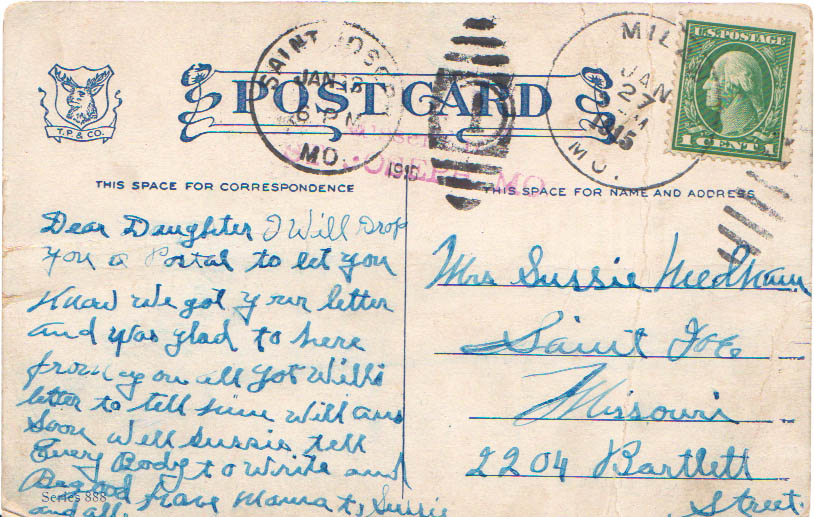 SAINT JOSEPH
JAN 28
6 PM
MO.
1915
MIL
JAN
27
M
1915
MO.
U.S. POSTAGE
1 CENT 1
T.P. & CO.
POST CARD
ST. JOSEPH, MO.
THIS SPACE FOR CORRESPONDENCE
THIS SPACE FOR NAME AND ADDRESS
Dear Daughter I Will Drop
You a Postal to let you
Know we got your letter
and was glad to here
from you all got Will's
letter to tell him will ans
Soon Well Sussie tell
Every Body to write and
Be good from Mama to Sussie
and all.
Series 888
Mrs Sussie Needham
Saint Joe
Missouri
2204 Bartlett
Street.